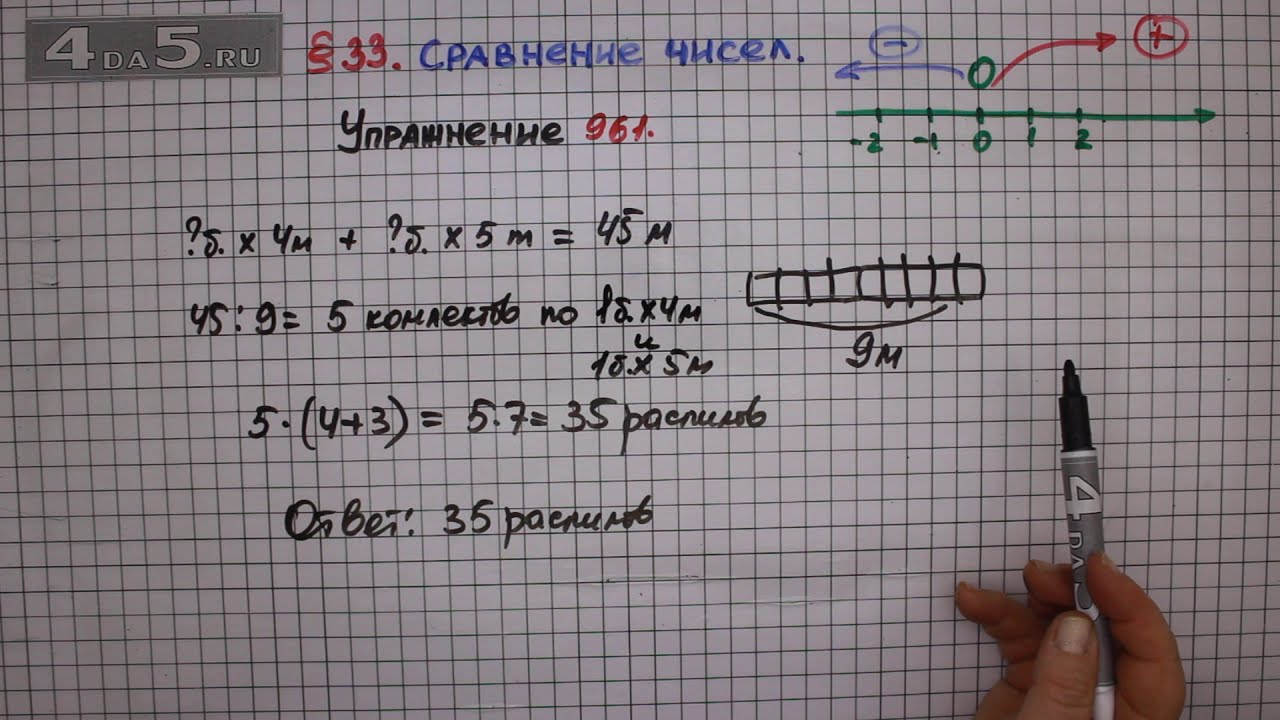 4DA5.RU
§ 33. Сравнение чисел.
− 0 +
-2 -1 0 1 2
Упражнение 961.
?б. x 4м + ?б. x 5 м = 45 м
45 : 9 = 5 комлектов по 1б. x 4м
и
1б. x 5м
9м
5 · (4+3) = 5·7 = 35 распилов
Ответ: 35 распилов
4DA5